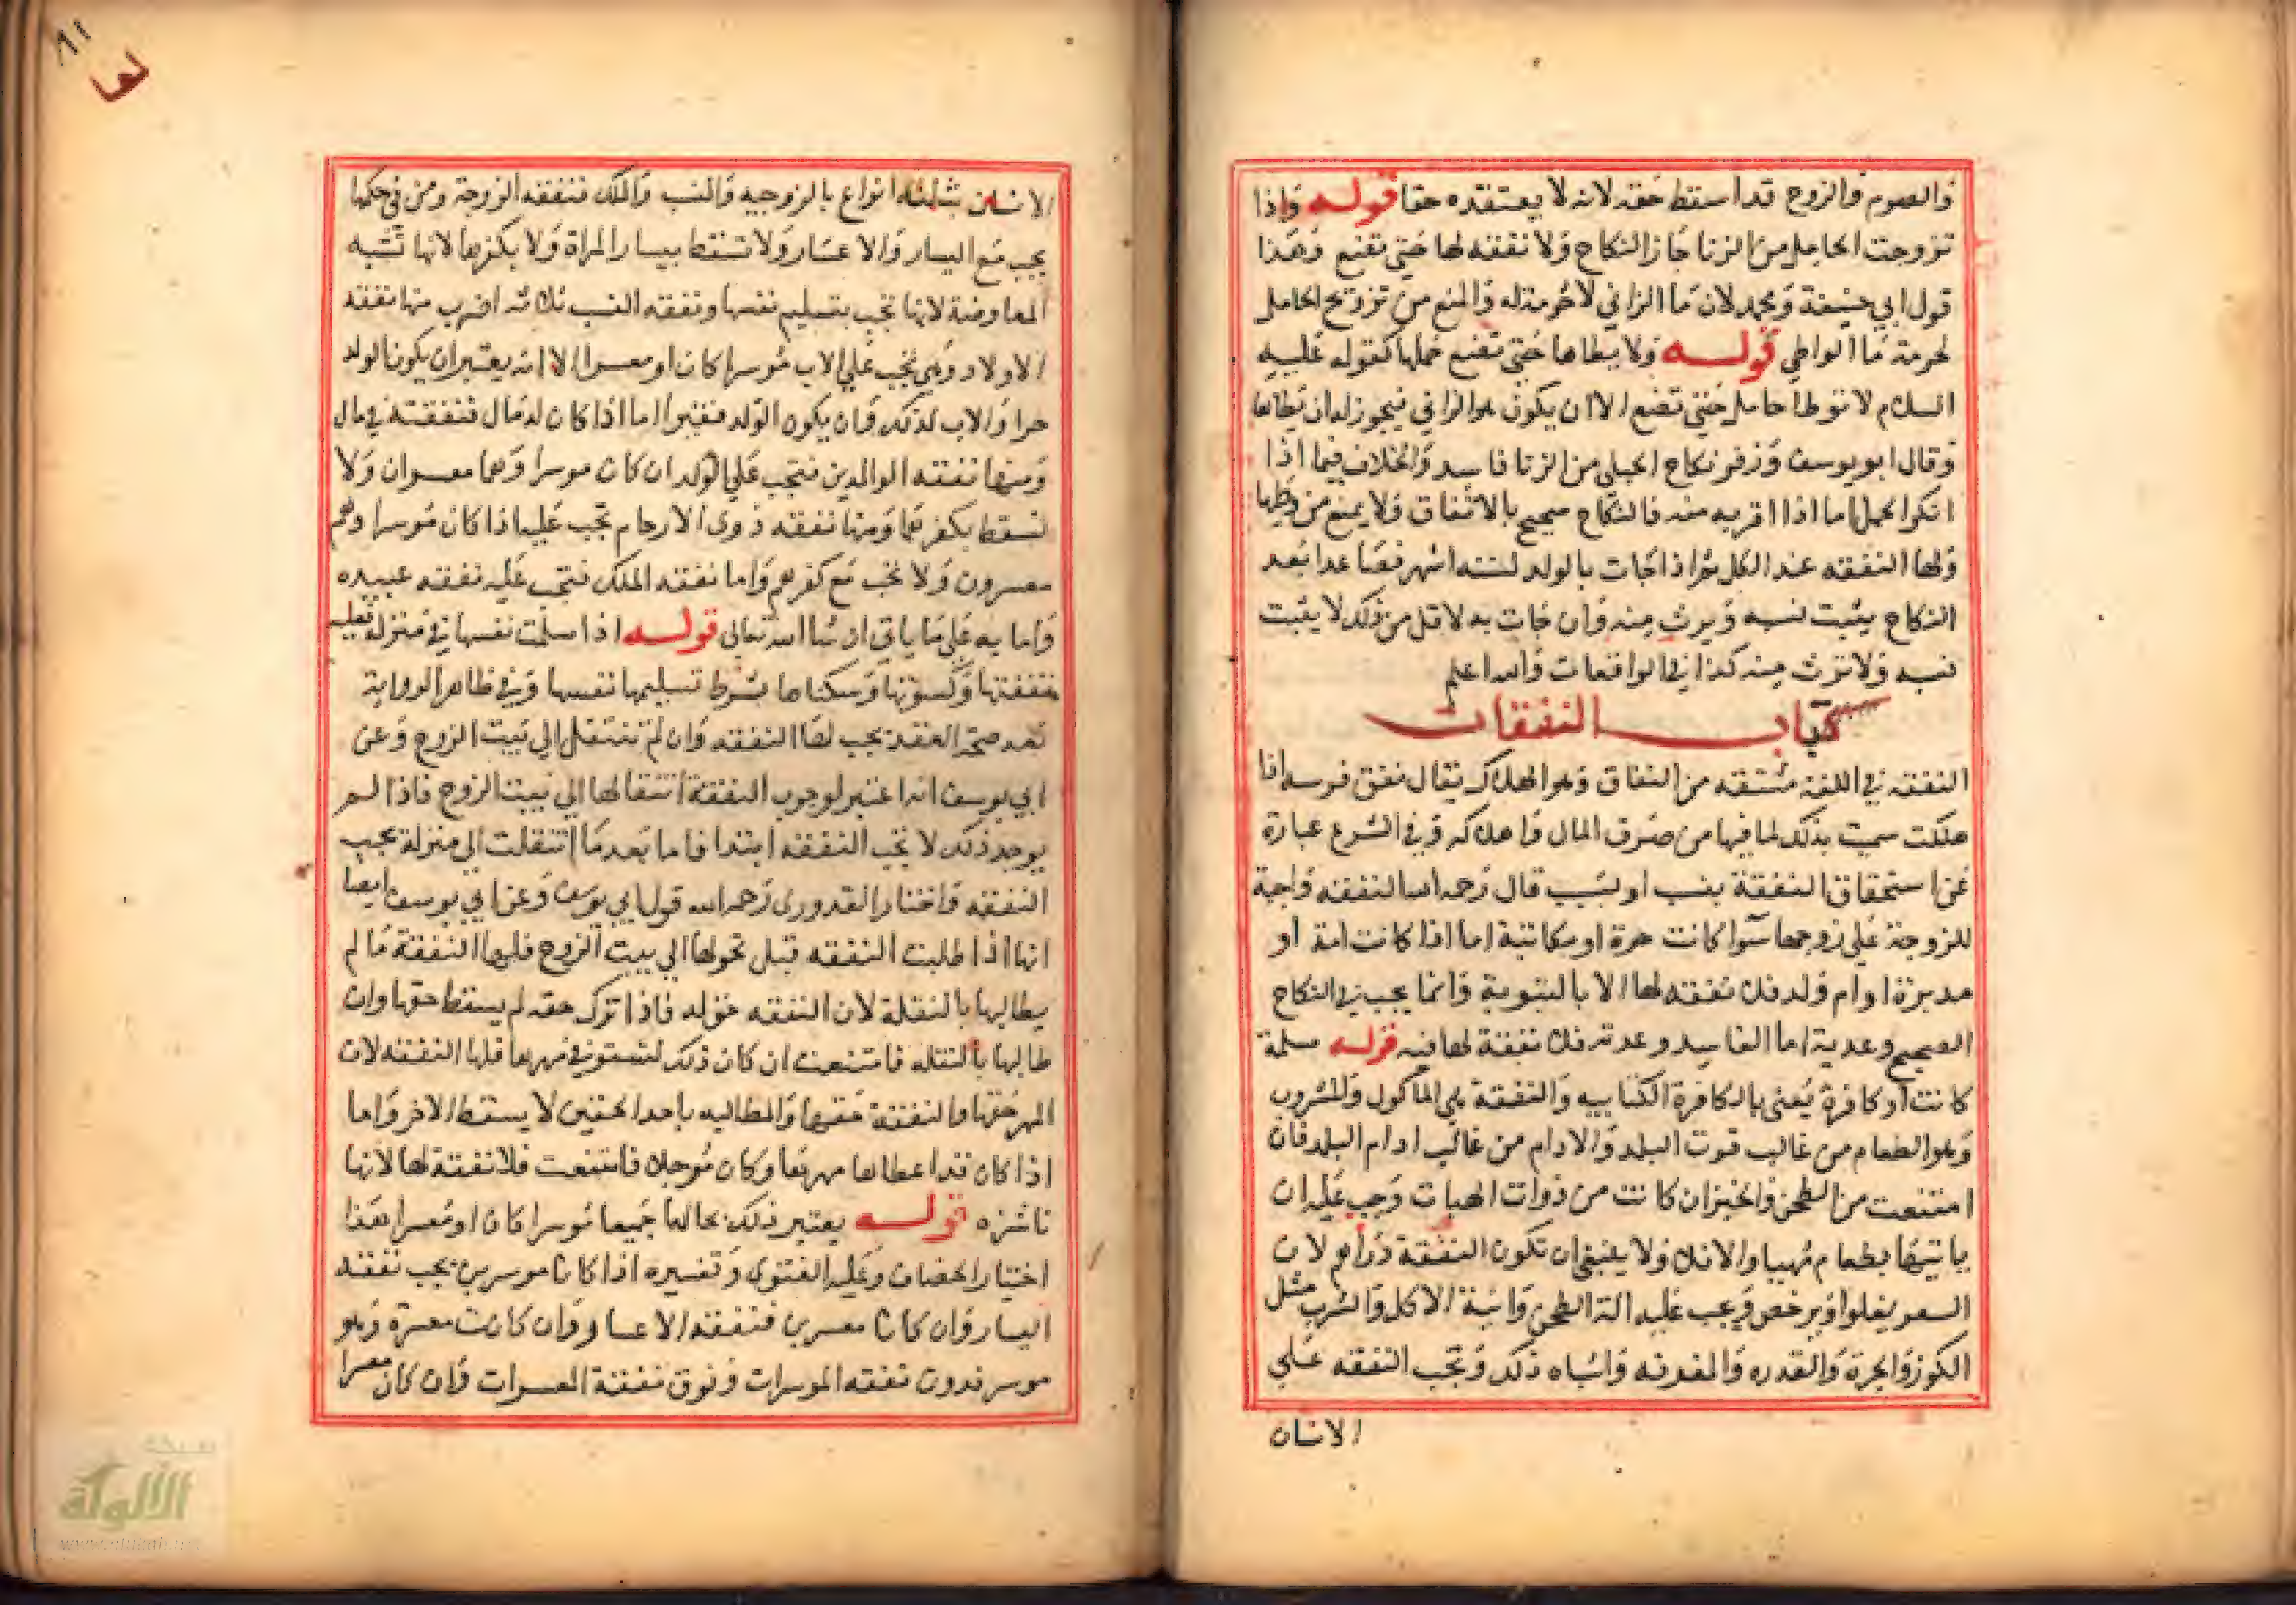 والصوم والزوج قد اسقط حقه لانه لا يعتقده حقا قوله واذا
تزوجت الحامل من الزنا جاز النكاح ولا نفقه لها حتى تضع وهذا
قول ابي حنيفة ومحمد لان ما الزاني لا حرمة له والمنع من تزويج الحامل
لحرمة ما الواطي قوله ولا يطاها حتى تضع حملها كقوله عليه
السلام لا توطا حامل حتى تضع الا ان يكون هو الزاني فيجوز له ان يطاها
وقال ابو يوسف وزفر نكاح الحبلى من الزنا فاسد والخلاف فيما اذا
انكر الحمل اما اذا اقر به منه فالنكاح صحيح بالاتفاق ولا يمنع من وطيها
ولها النفقه عند الكل ثم اذا جات بالولد لسته اشهر فصاعدا بعد
النكاح يثبت نسبه ويرث منه وان جات به لاقل من ذلك لا يثبت
نسبه ولا ترث منه كذا في الواقعات والله اعلم
كتاب النفقات
النفقه في اللغة مشتقه من النفاق وهو الهلاك يقال نفق فرسه اذا
هلكت سميت بذلك لما فيها من صرف المال واهلاكه وفي الشرع عبارة
عن استحقاق النفقة بنسب او بسبب قال رحمه الله النفقه واجبة
للزوجة على زوجها سوا كانت حرة او مكاتبة اما اذا كانت امة او
مدبرة او ام ولد فلا نفقه لها الا بالتبوية وانما يجب في النكاح
الصحيح وعدته اما الفاسد وعدته فلا نفقة لها فيه قوله مسلمة
كانت او كافرة يعني بالكافرة الكتابيه والنفقة هي الماكول والمشروب
وهو الطعام من غالب قوت البلد والادام من غالب ادام البلد فان
امتنعت من الطحن والخبز ان كانت من ذوات الهيات وجب عليه ان
ياتيها بطعام مهيا والا فلا ولا ينبغي ان تكون النفقة دراهم لان
السعر يغلوا ويرخص ويجب عليه الة الطحن وانية الاكل والشرب مثل
الكوز والجرة والقدره والمغرفه واشباه ذلك وتجب النفقه على
الانسان
الانسان بثلثه انواع بالزوجيه والنسب والملك فنفقه الزوجة ومن في حكمها
يجب مع اليسار والاعسار ولا تسقط بيسار المراة ولا بكفرها لانها تشبه
المعاوضة لانها تجب بتسليم نفسها ونفقه النسب ثلاثه اضرب منها نفقه
الاولاد وهي تجب على الاب موسرا كان او معسرا الا انه يعتبر ان يكون الولد
حرا والاب كذلك وان يكون الولد فقيرا اما اذا كان له مال فنفقته في ماله
ومنها نفقه الوالدين فتجب على الولد ان كان موسرا وهما معسران ولا
تسقط بكفرهما ومنها نفقه ذوي الارحام تجب عليه اذا كان موسرا وهم
معسرون ولا تجب مع كفرهم واما نفقه الملك فتجب عليه نفقه عبيده
واما يه على ما ياتي ان شا الله تعالى قوله اذا سلمت نفسها في منزله فعليه
نفقتها وكسوتها وسكناها بشرط تسليمها نفسها وفي ظاهر الرواية
بعد صحة العقد يجب لها النفقه وان لم تنتقل الى بيت الزوج وعن
ابي يوسف انه اعتبر لوجوب النفقة انتقالها الى بيت الزوج فاذا لم
يوجد ذلك لا تجب النفقه ابتدا فاما بعد ما انتقلت الى منزله يجب
النفقه واختار القدوري رحمه الله قول ابي يوسف وعن ابي يوسف ايضا
انها اذا طلبت النفقه قبل تحولها الى بيت الزوج فلها النفقة ما لم
يطالبها بالنقلة لان النفقه حق له فاذا ترك حقه لم يسقط حقها وان
طالبها بالنقله فامتنعت ان كان ذلك لتستوفي مهرها فلها النفقه لان
المهر حقها والنفقة حقها والمطالبه باحد الحقين لا يسقط الاخر واما
اذا كان قد اعطاها مهرها وكان موجلا فامتنعت فلا نفقة لها لانها
ناشزه قوله يعتبر ذلك بحالهما جميعا موسرا كان او معسرا هذا
اختيار الخصاف وعليه الفتوى وتفسيره اذا كانا موسرين يجب نفقه
اليسار وان كانا معسرين فنفقه الاعسار وان كانت معسرة وهو
موسر فدون نفقه الموسرات وفوق نفقة المعسرات وان كان معسرا
الألوكة